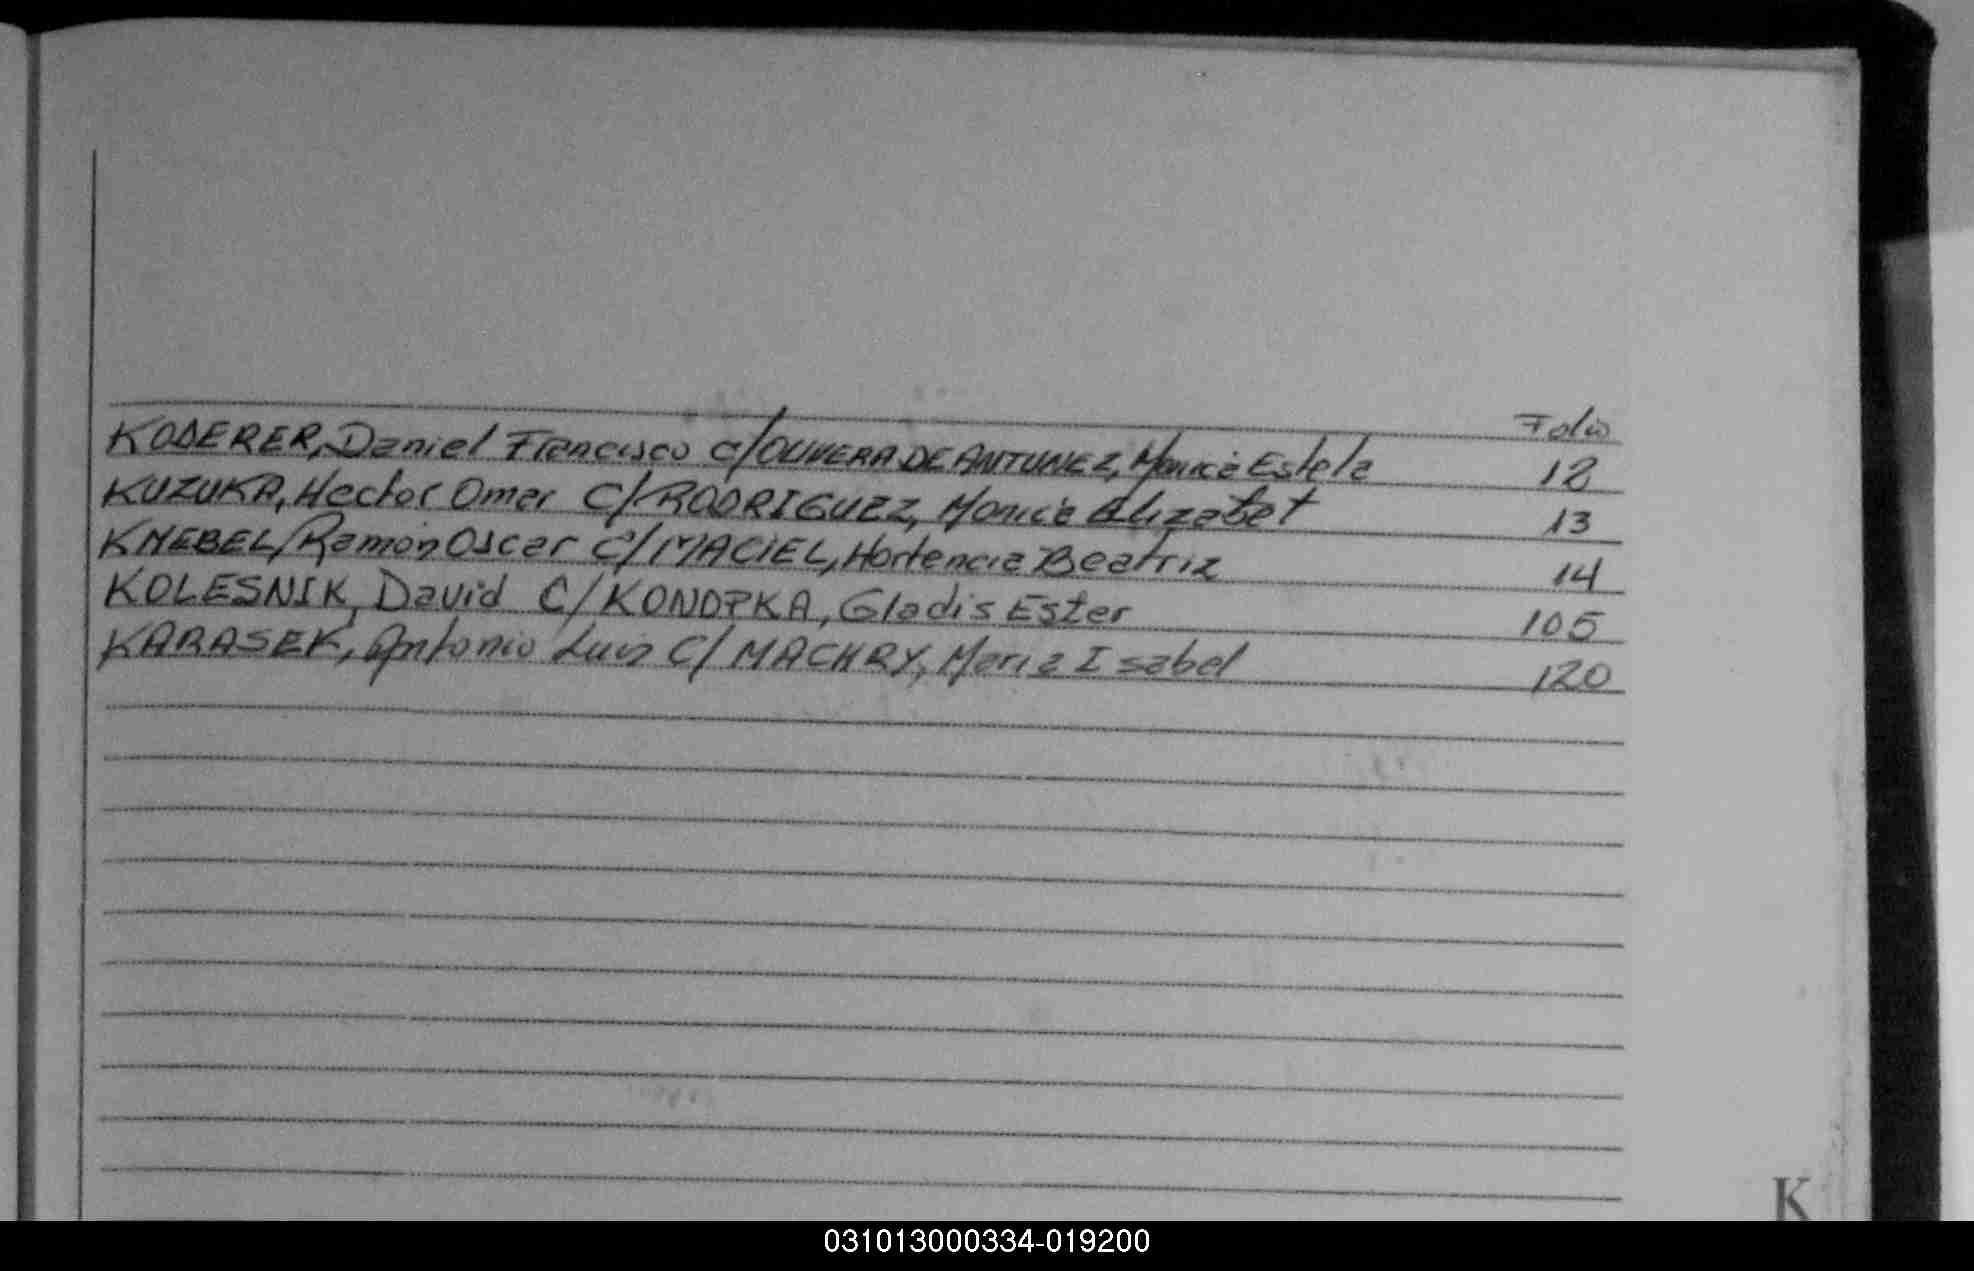 Folio
KODERER, Daniel Francisco c/OLIVERA DE ANTUNEZ, Monica Estela 12
KUZUKA, Hector Omar C/RODRIGUEZ, Monica Elizabet 13
KNEBEL, Ramón Oscar C/MACIEL, Hortencia Beatriz 14
KOLESNIK, David C/KONOPKA, Gladis Ester 105
KARASEK, Antonio Luis C/MACHRY, Maria Isabel 120
K
031013000334-019200